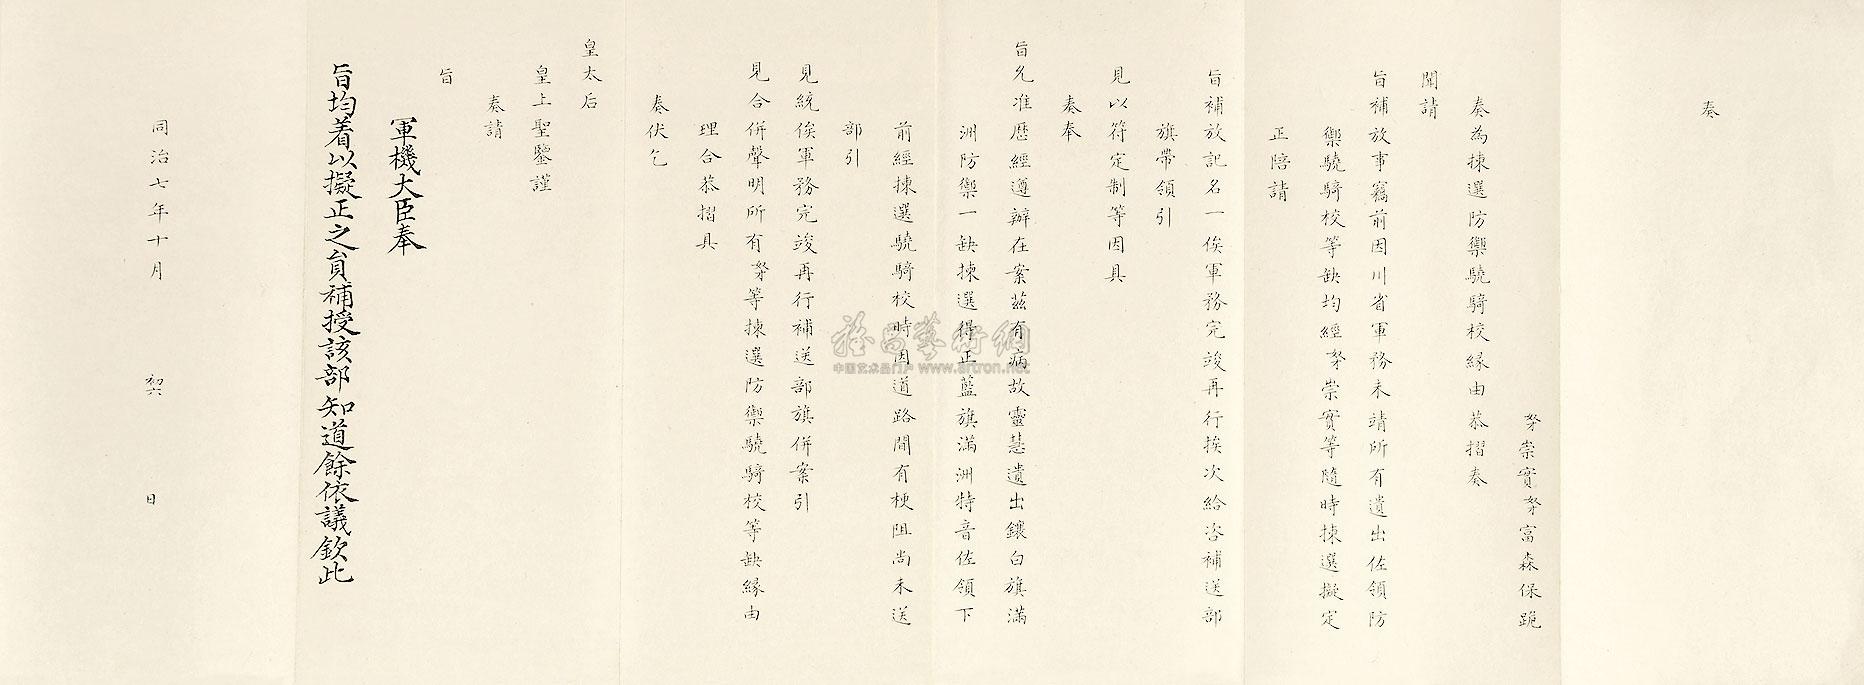 奏
奴才崇實奴才富森保跪
奏為揀選防禦驍騎校緣由恭摺奏
聞請
旨補放事竊前因川省軍務未靖所有遺出佐領防
禦驍騎校等缺均經奴才崇實等隨時揀選擬定
正陪請
旨補放記名一俟軍務完竣再行挨次給咨補送部
旗帶領引
見以符定制等因具
奏奉
旨允准歷經遵辦在案茲有病故靈慧遺出鑲白旗滿
洲防禦一缺揀選得正藍旗滿洲特音佐領下
前經揀選驍騎校時因道路間有梗阻尚未送
部引
見統俟軍務完竣再行補送部旗併案引
見合併聲明所有奴才等揀選防禦驍騎校等缺緣由
理合恭摺具
奏伏乞
皇太后
皇上聖鑒謹
奏請
旨
軍機大臣奉
旨均着以擬正之員補授該部知道餘依議欽此
同治七年十月 初六 日
雅昌藝術網
中国艺术品门户 www.artron.net